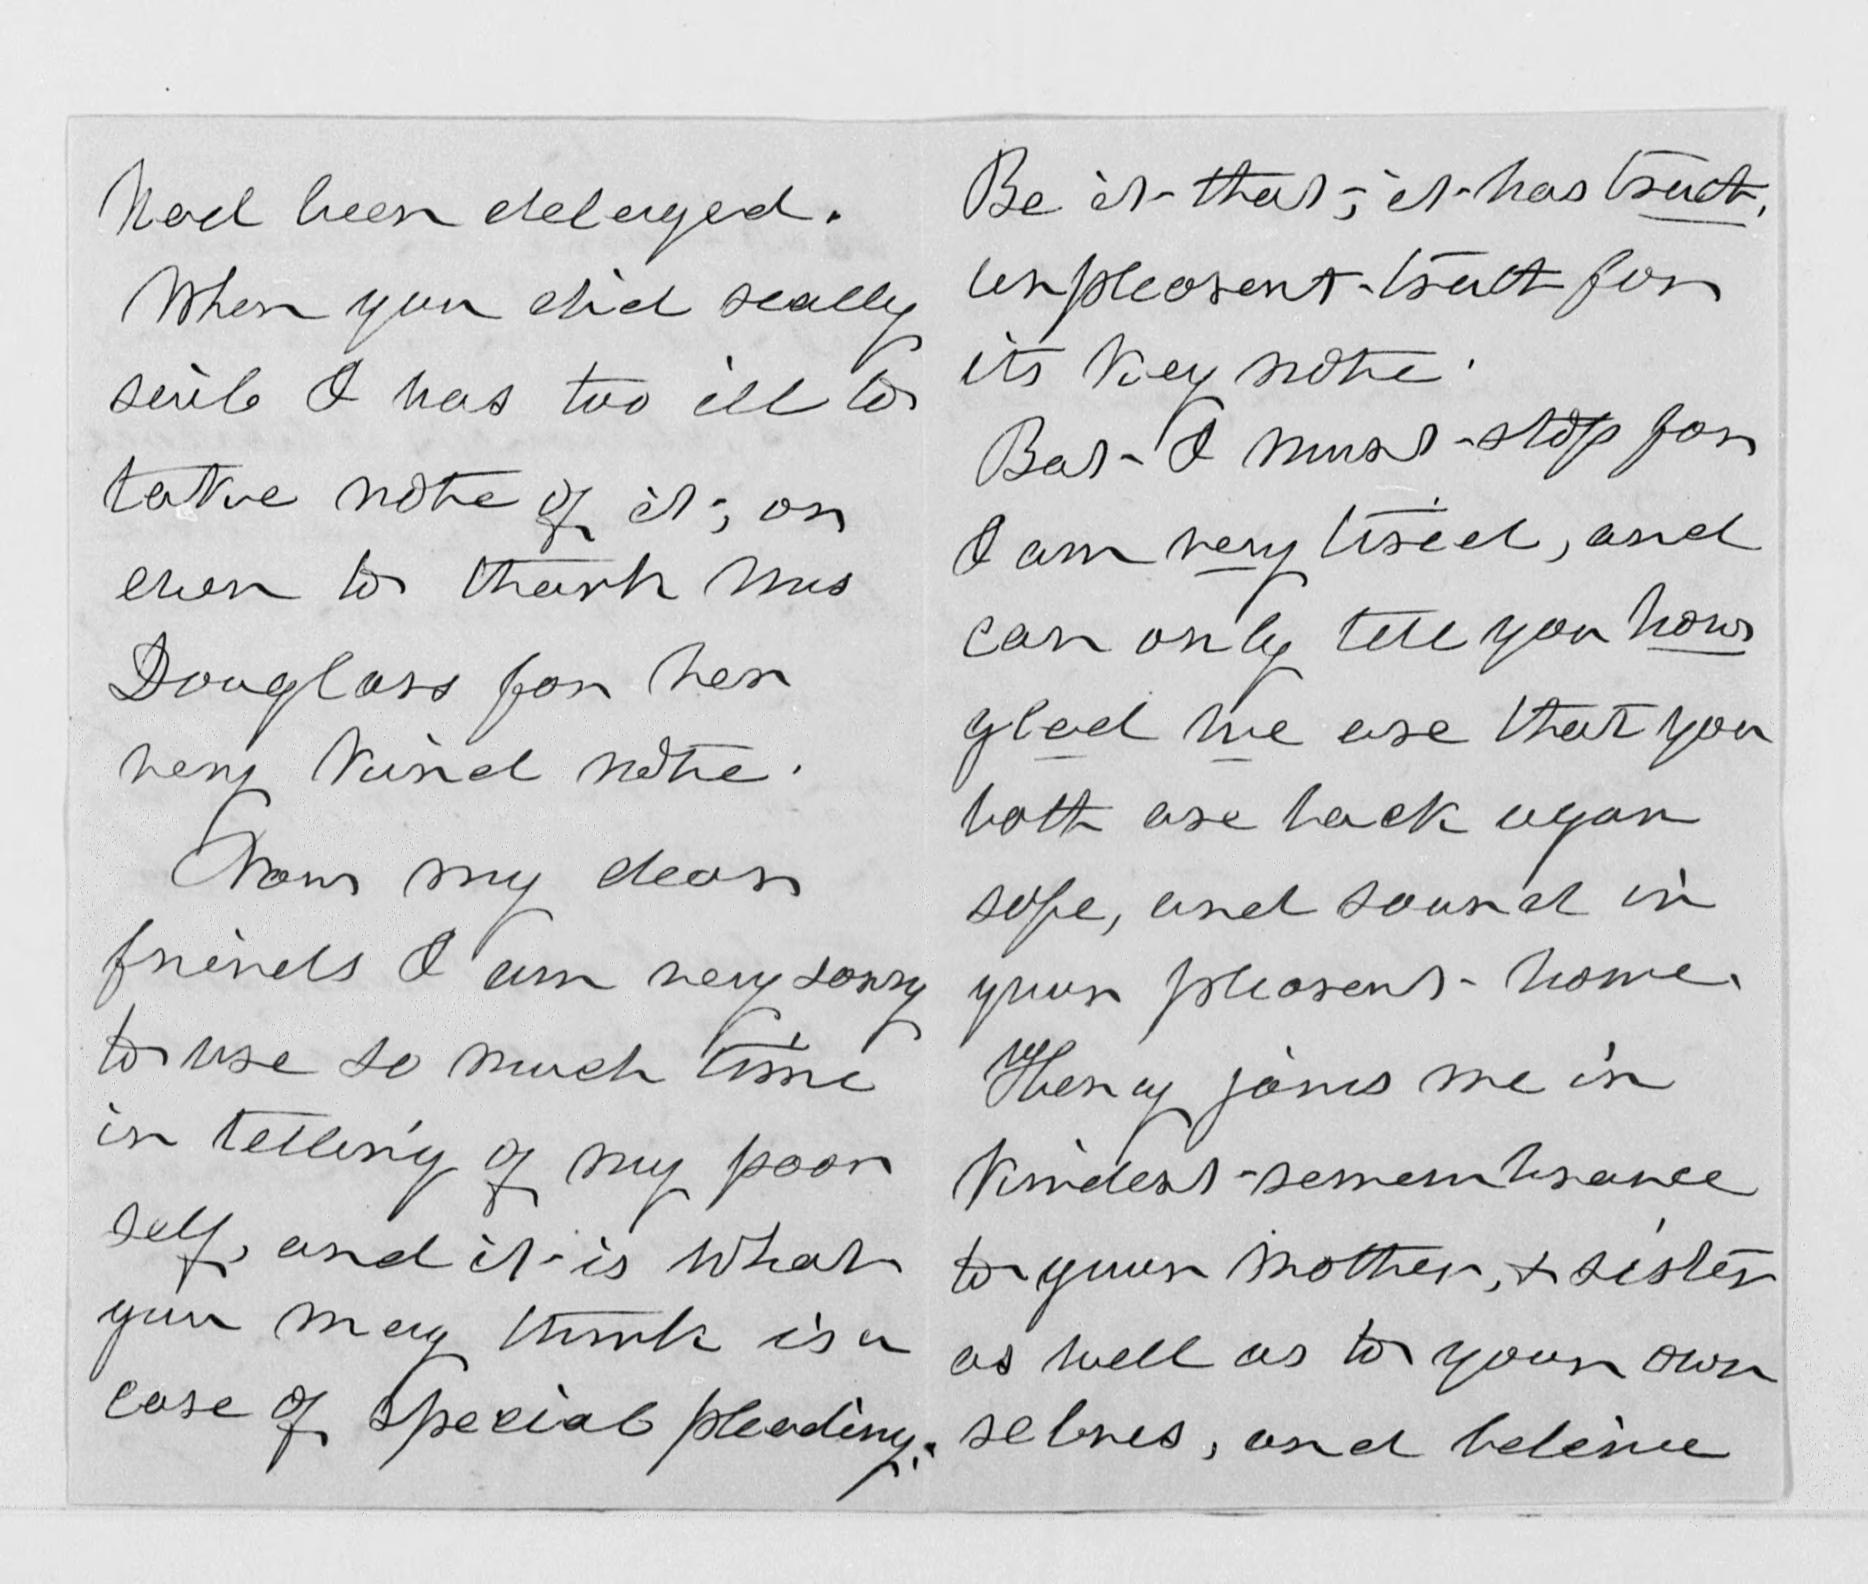 had been delayed.
When you did really
sail I was too ill to
take note of it; or
even to thank Mrs
Douglass for her
very kind note.
Now my dear
friends I am very sorry
to use so much time
in telling of my poor
self, and it is what
you may think is a
case of special pleading.
Be it that; it has truth,
unpleasent truth for
its key note.
But I must stop for
I am very tired, and
can only tell you how
glad we are that you
both are back again
safe, and sound in
your pleasent home.
Henry joins me in
kindest remembrance
to your Mother, & sister
as well as to your own
selves, and beleive